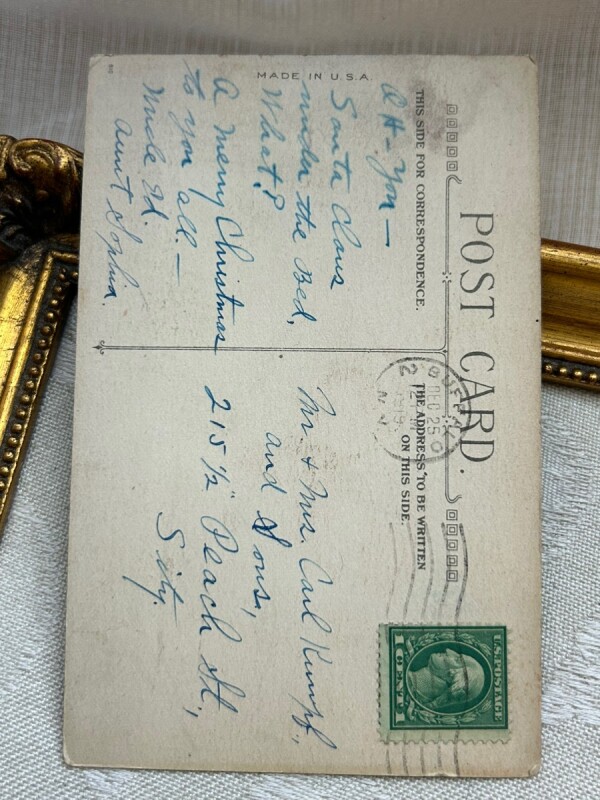 MADE IN U.S.A.
POST CARD.
THIS SIDE FOR CORRESPONDENCE.
THE ADDRESS TO BE WRITTEN
ON THIS SIDE.
BUFFALO
DEC 25
1919
N.Y.
2
U.S. POSTAGE
1 CENT 1
Oh - You -
Santa Claus
under the Bed,
What?
A Merry Christmas
to you all. -
Uncle Ed.
Aunt Sophia.
Mr. & Mrs. Carl Kumpf,
and Sons,
215 1/2 Peach St.,
Sity.